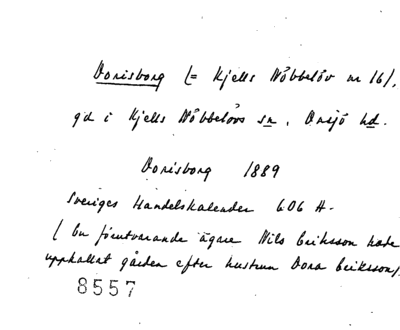 Dorisborg (= Kjells Nöbbelöv nr 16),
gd i Kjells Nöbbelövs sn, Onsjö hd.
Dorisborg 1889
Sveriges Handelskalender 606 H.
( Den förutvarande ägare Nils Eriksson hade
uppkallat gården efter hustrun Dora Eriksson).
8557